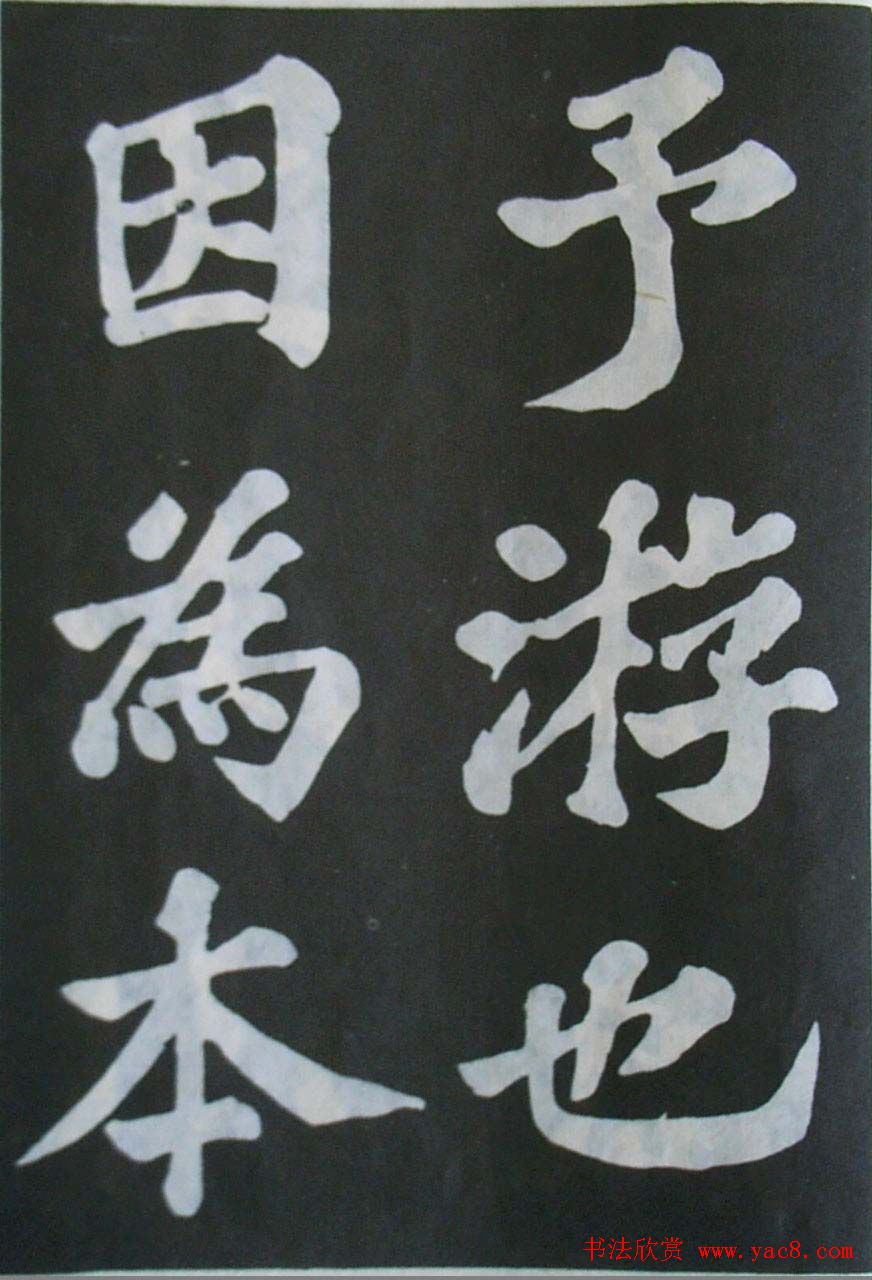 予游也
因為本
书法欣赏 www.yac8.com